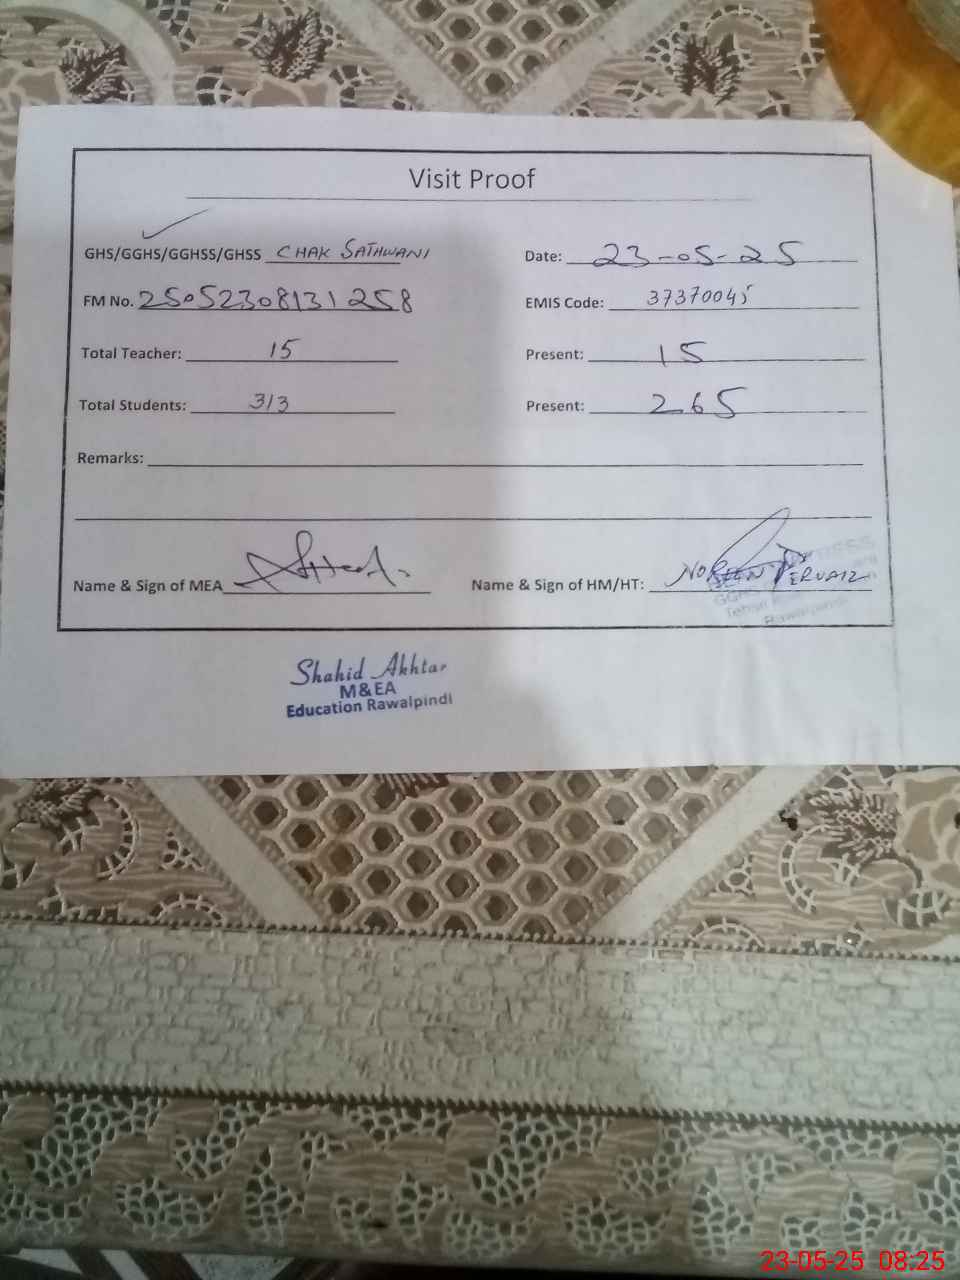 Visit Proof
GHS/GGHS/GGHSS/GHSS CHAK SATHWANI Date: 23-05-25
FM No. 25052308131258 EMIS Code: 37370045
Total Teacher: 15 Present: 15
Total Students: 313 Present: 265
Remarks:
Name & Sign of MEA Name & Sign of HM/HT: NOREEN PERVAIZ
Rawalpindi
Shahid Akhtar
M&EA
Education Rawalpindi
23-05-25 08:25